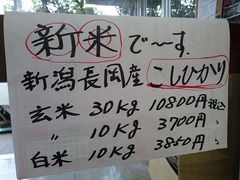 新米で〜す.
新潟長岡産こしひかり
玄米 30kg 10800円税込
〃 10kg 3700円〃
白米 10kg 3850円〃